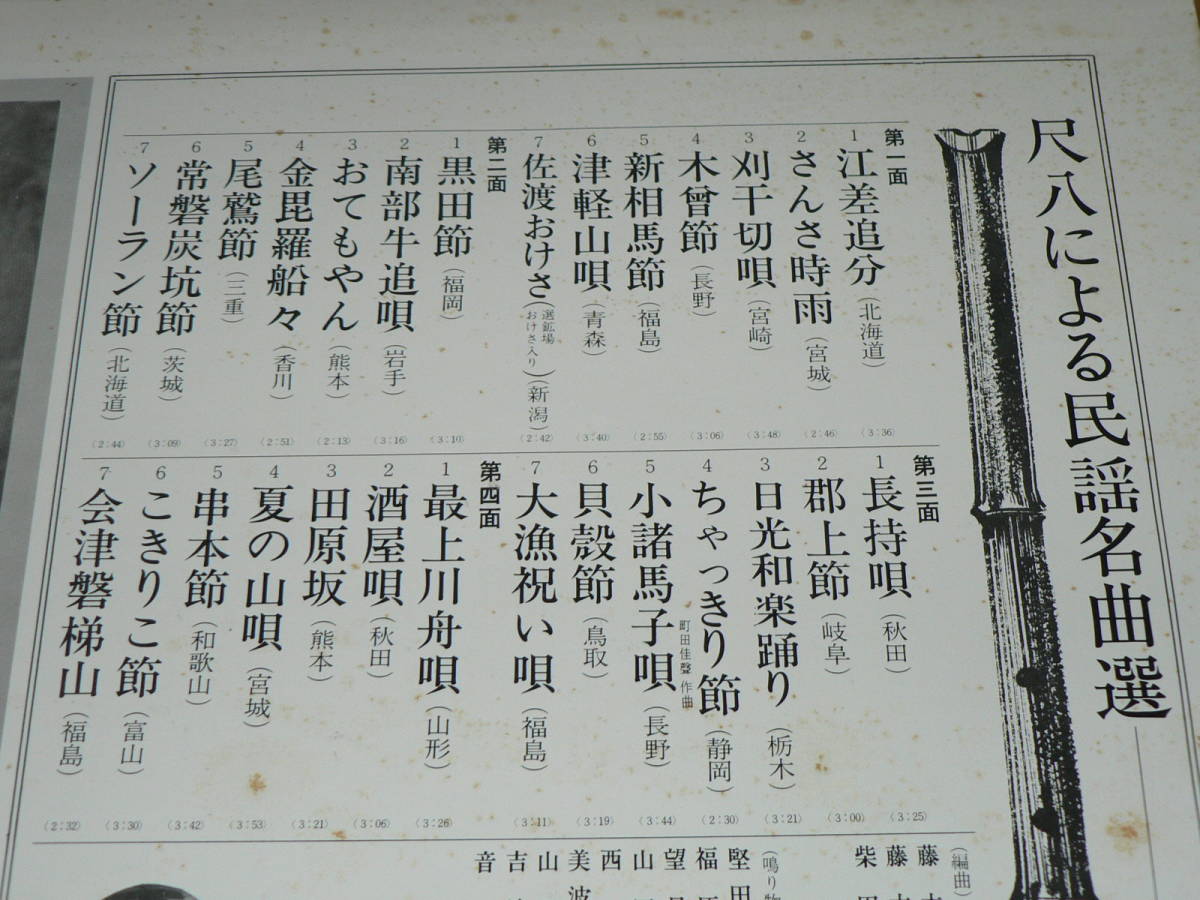 尺八による民謡名曲選
第一面
1 江差追分(北海道) (3:36)
2 さんさ時雨(宮城) (2:46)
3 刈干切唄(宮崎) (3:48)
4 木曾節(長野) (3:06)
5 新相馬節(福島) (2:55)
6 津軽山唄(青森) (3:40)
7 佐渡おけさ(選鉱場おけさ入り)(新潟) (2:42)
第二面
1 黒田節(福岡) (3:10)
2 南部牛追唄(岩手) (3:16)
3 おてもやん(熊本) (2:13)
4 金毘羅船々(香川) (2:51)
5 尾鷲節(三重) (3:27)
6 常磐炭坑節(茨城) (3:09)
7 ソーラン節(北海道) (2:44)
第三面
1 長持唄(秋田) (3:25)
2 郡上節(岐阜) (3:00)
3 日光和楽踊り(栃木) (3:21)
4 ちゃっきり節(静岡) (2:30)
町田佳聲 作曲
5 小諸馬子唄(長野) (3:44)
6 貝殻節(鳥取) (3:19)
7 大漁祝い唄(福島) (3:11)
第四面
1 最上川舟唄(山形) (3:26)
2 酒屋唄(秋田) (3:06)
3 田原坂(熊本) (3:21)
4 夏の山唄(宮城) (3:53)
5 串本節(和歌山) (3:42)
6 こきりこ節(富山) (3:30)
7 会津磐梯山(福島) (2:32)
(編曲)
藤
藤
柴
(鳴り物
堅田
福
望
山
西
美波
山
吉
音